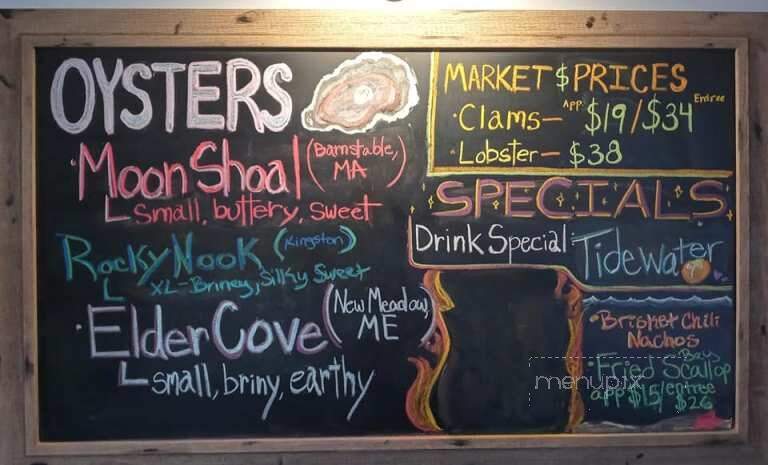 OYSTERS
·Moon Shoal (Barnstable, MA)
small, buttery, sweet
Rocky Nook (Kingston)
XL-Briney, Silky Sweet
·Elder Cove (New Meadow, ME)
small, briny, earthy
MARKET $ PRICES
·Clams— App. $19/$34 Entree
·Lobster— $38
SPECIALS
Drink Special: Tidewater
·Brisket Chili
Nachos
·Fried Bay Scallop
app $15/entree
$26
menupix